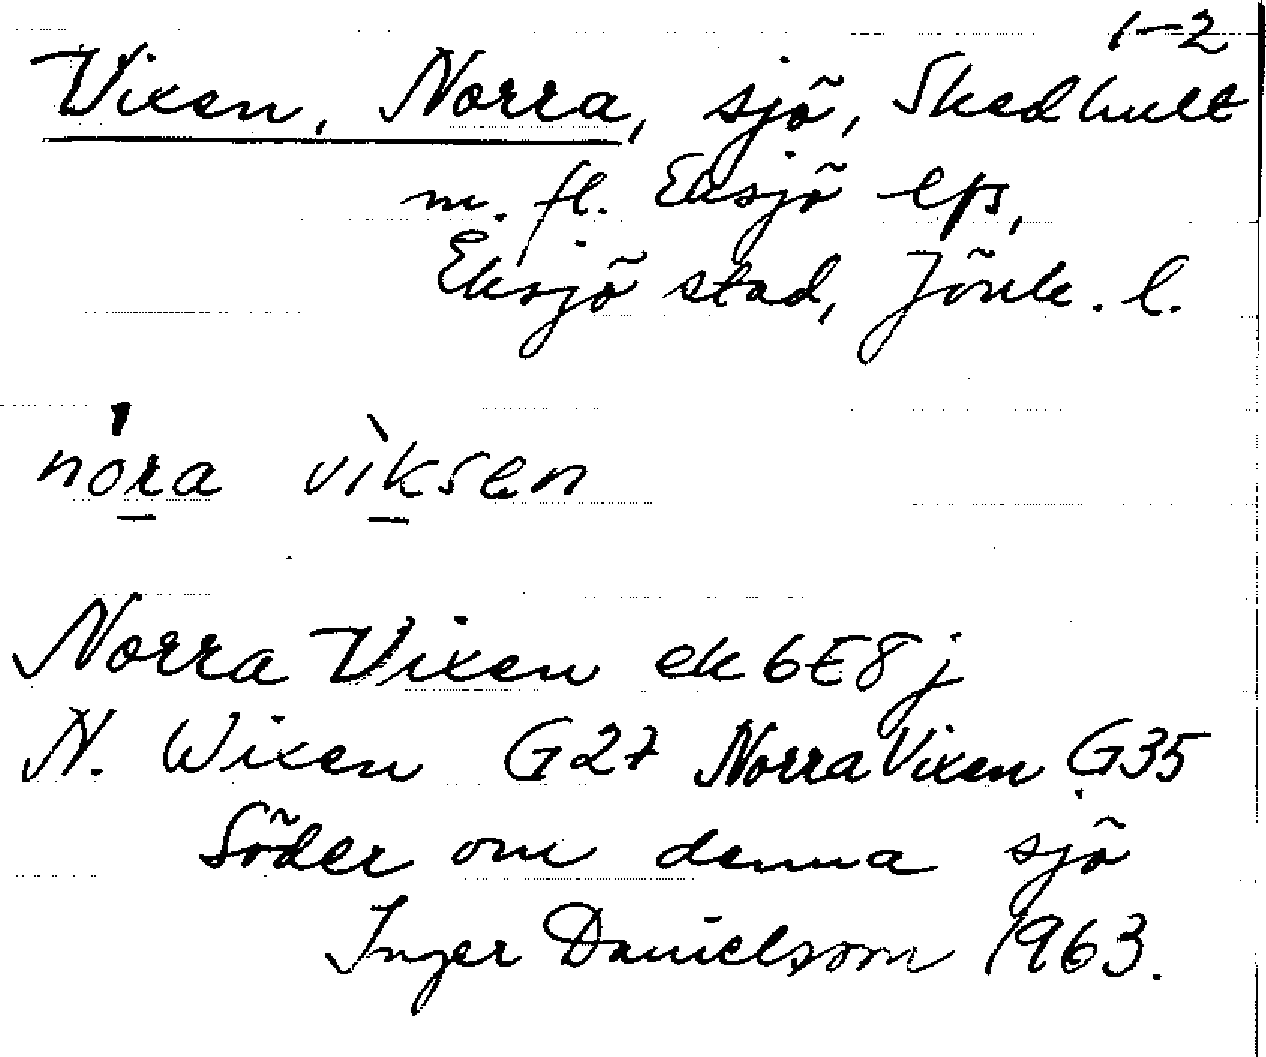 1-2
Vixen, Norra, sjö, Skedhult
m. fl. Eksjö lfs,
Eksjö stad, Jönk. l.
nóra vìksen
Norra Vixen ek 6E8j
N. Wixen G27 Norra Vixen G35
Söder om denna sjö
Inger Danielsson 1963.